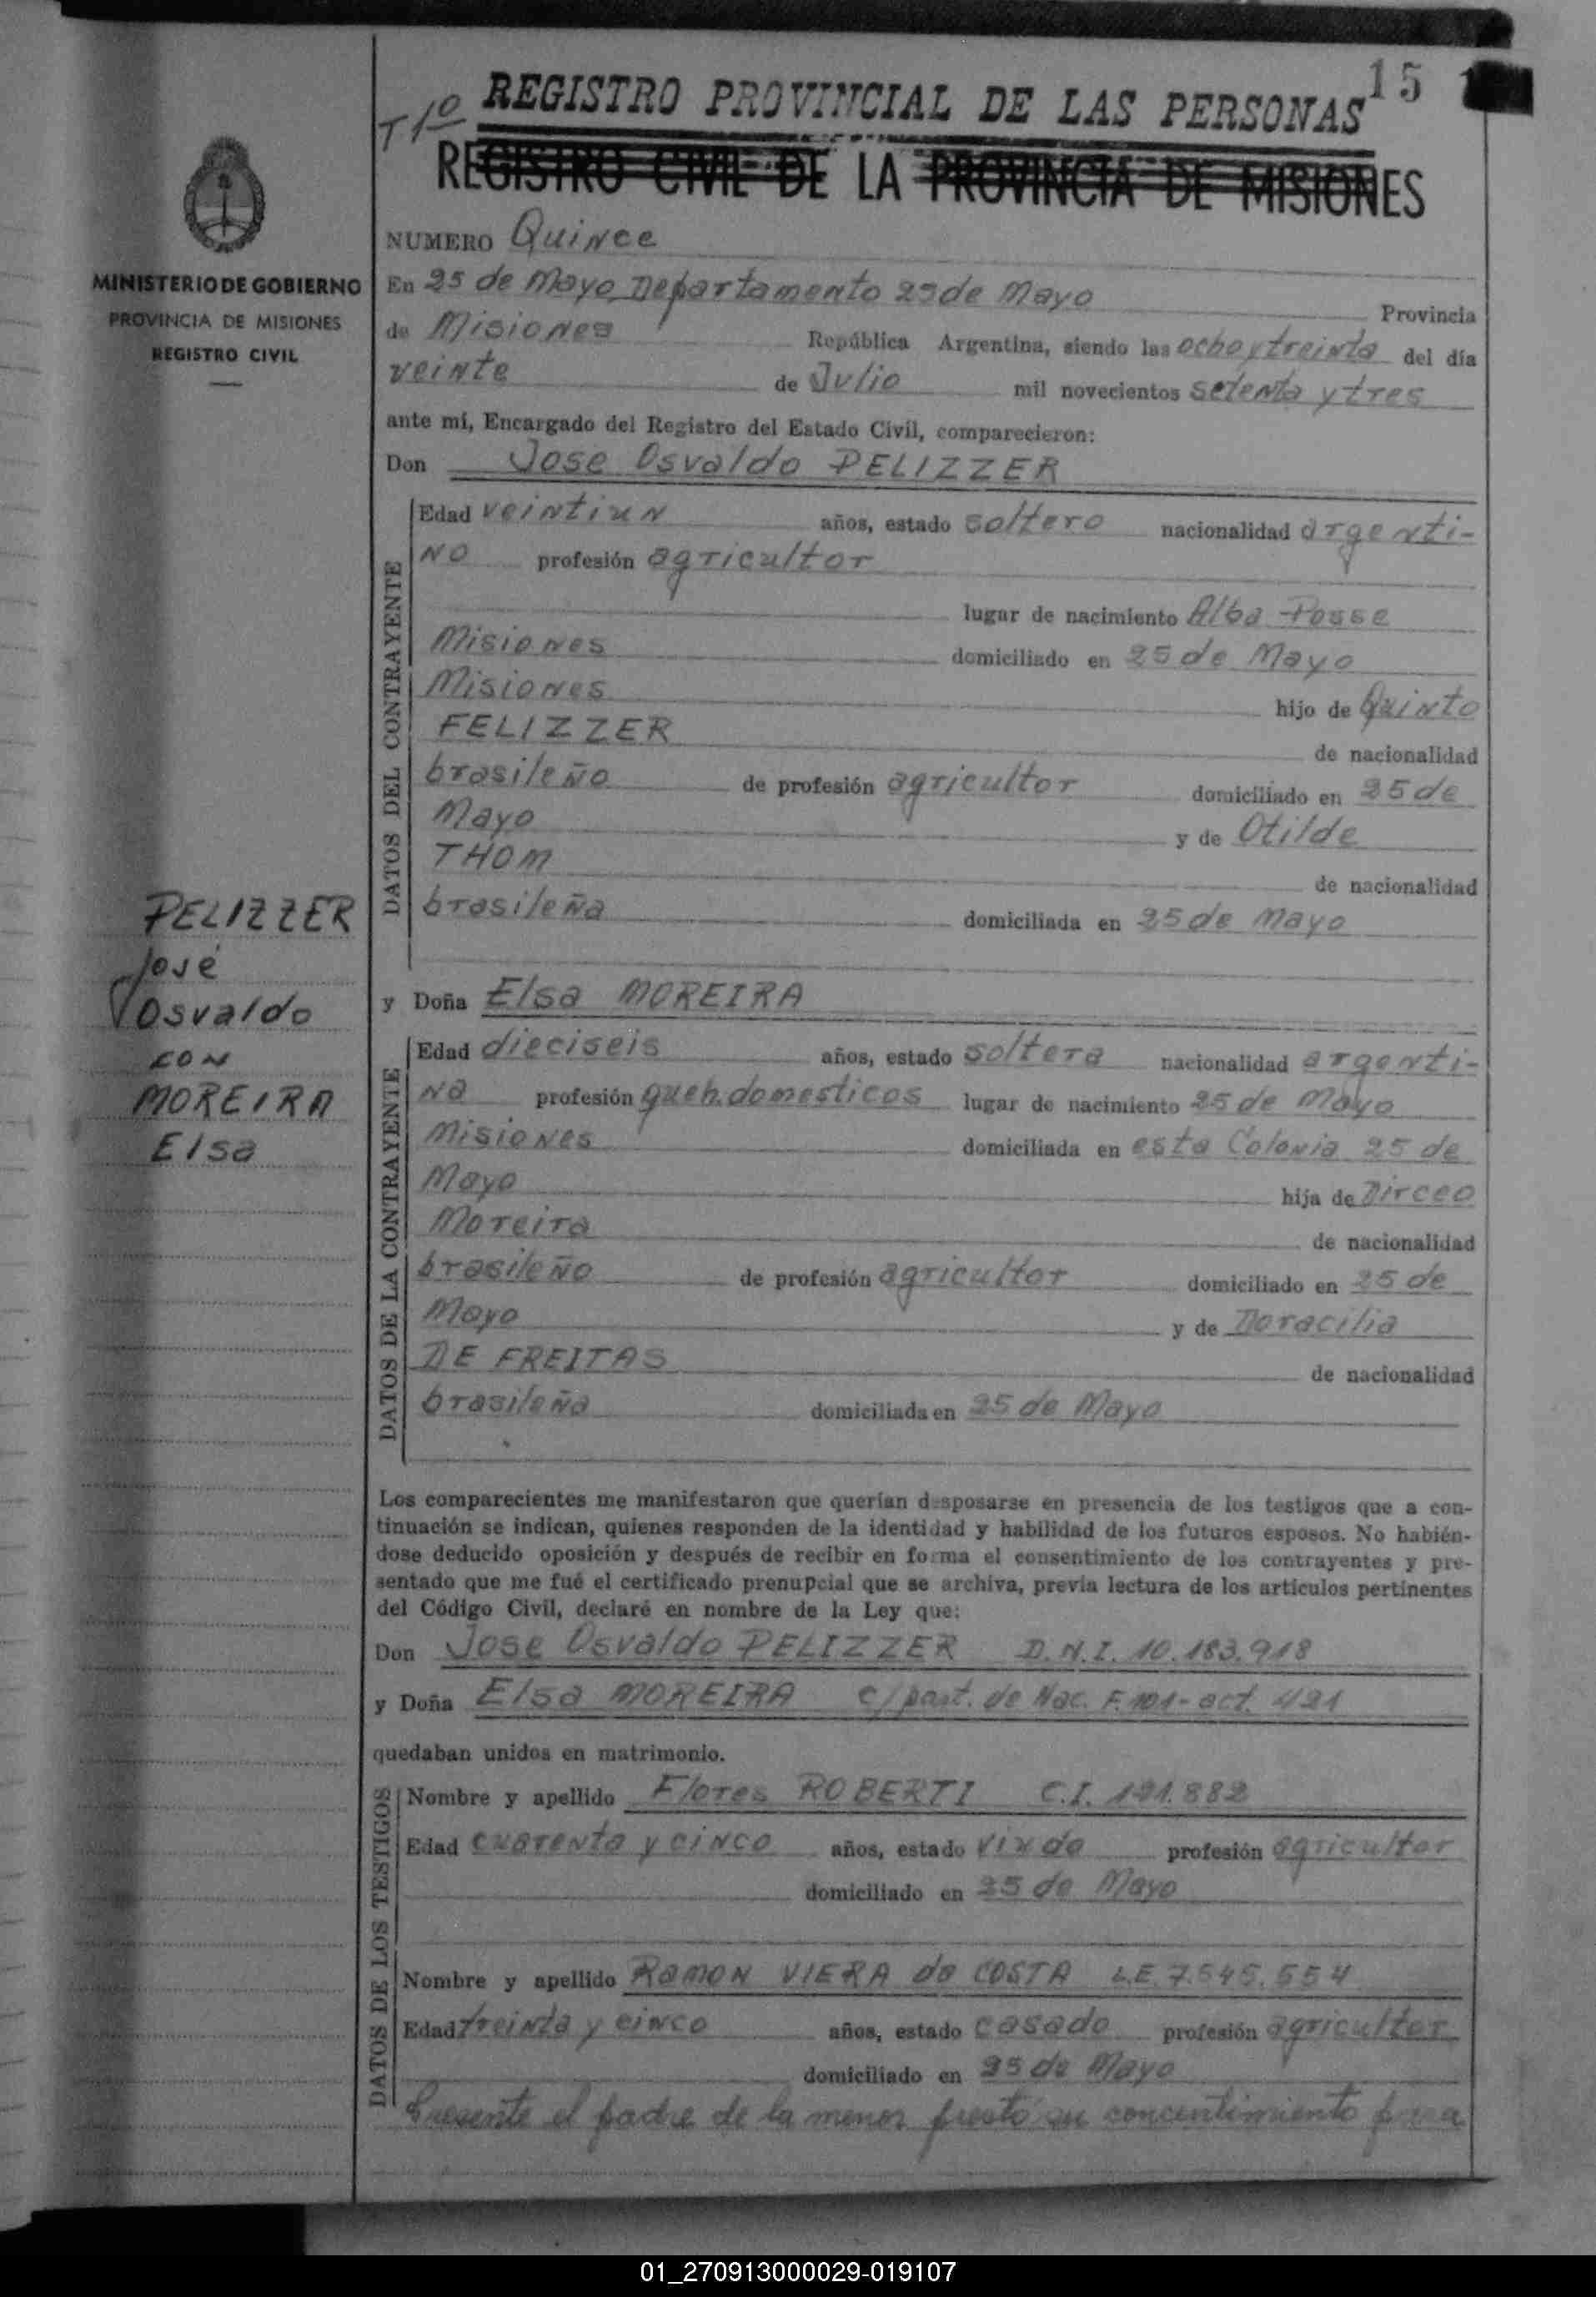 15
T 1º REGISTRO PROVINCIAL DE LAS PERSONAS
REGISTRO CIVIL DE LA PROVINCIA DE MISIONES
MINISTERIO DE GOBIERNO
PROVINCIA DE MISIONES
REGISTRO CIVIL
NUMERO Quince
En 25 de Mayo Departamento 25 de Mayo Provincia
de Misiones República Argentina, siendo las ocho y treinta del día
veinte de Julio mil novecientos setenta y tres
ante mí, Encargado del Registro del Estado Civil, comparecieron:
Don Jose Osvaldo PELIZZER
DATOS DEL CONTRAYENTE
Edad veintiun años, estado soltero nacionalidad argenti-
no profesión agricultor
lugar de nacimiento Alba Posse
Misiones domiciliado en 25 de Mayo
Misiones hijo de Quinto
FELIZZER de nacionalidad
brasileño de profesión agricultor domiciliado en 25 de
Mayo y de Otilde
THOM de nacionalidad
brasileña domiciliada en 25 de Mayo
PELIZZER
José
Osvaldo
con
MOREIRA
Elsa
y Doña Elsa MOREIRA
DATOS DE LA CONTRAYENTE
Edad dieciseis años, estado soltera nacionalidad argenti-
na profesión queh. domesticos lugar de nacimiento 25 de Mayo
Misiones domiciliada en esta Colonia 25 de
Mayo hija de Dirceo
Moreira de nacionalidad
brasileño de profesión agricultor domiciliado en 25 de
Mayo y de Doracilia
DE FREITAS de nacionalidad
brasileña domiciliada en 25 de Mayo
Los comparecientes me manifestaron que querían desposarse en presencia de los testigos que a con-
tinuación se indican, quienes responden de la identidad y habilidad de los futuros esposos. No habién-
dose deducido oposición y después de recibir en forma el consentimiento de los contrayentes y pre-
sentado que me fué el certificado prenupcial que se archiva, previa lectura de los artículos pertinentes
del Código Civil, declaré en nombre de la Ley que:
Don Jose Osvaldo PELIZZER D.N.I. 10.183.918
y Doña Elsa MOREIRA c/part. de Nac. F. 101- act. 421
quedaban unidos en matrimonio.
DATOS DE LOS TESTIGOS
Nombre y apellido Flores ROBERTI C.I. 121.882
Edad cuarenta y cinco años, estado viudo profesión agricultor
domiciliado en 25 de Mayo
Nombre y apellido Ramon VIERA da COSTA L.E. 7.545.554
Edad treinta y cinco años, estado casado profesión agricultor
domiciliado en 25 de Mayo
Presente el padre de la menor prestó su concentimiento para
01_270913000029-019107